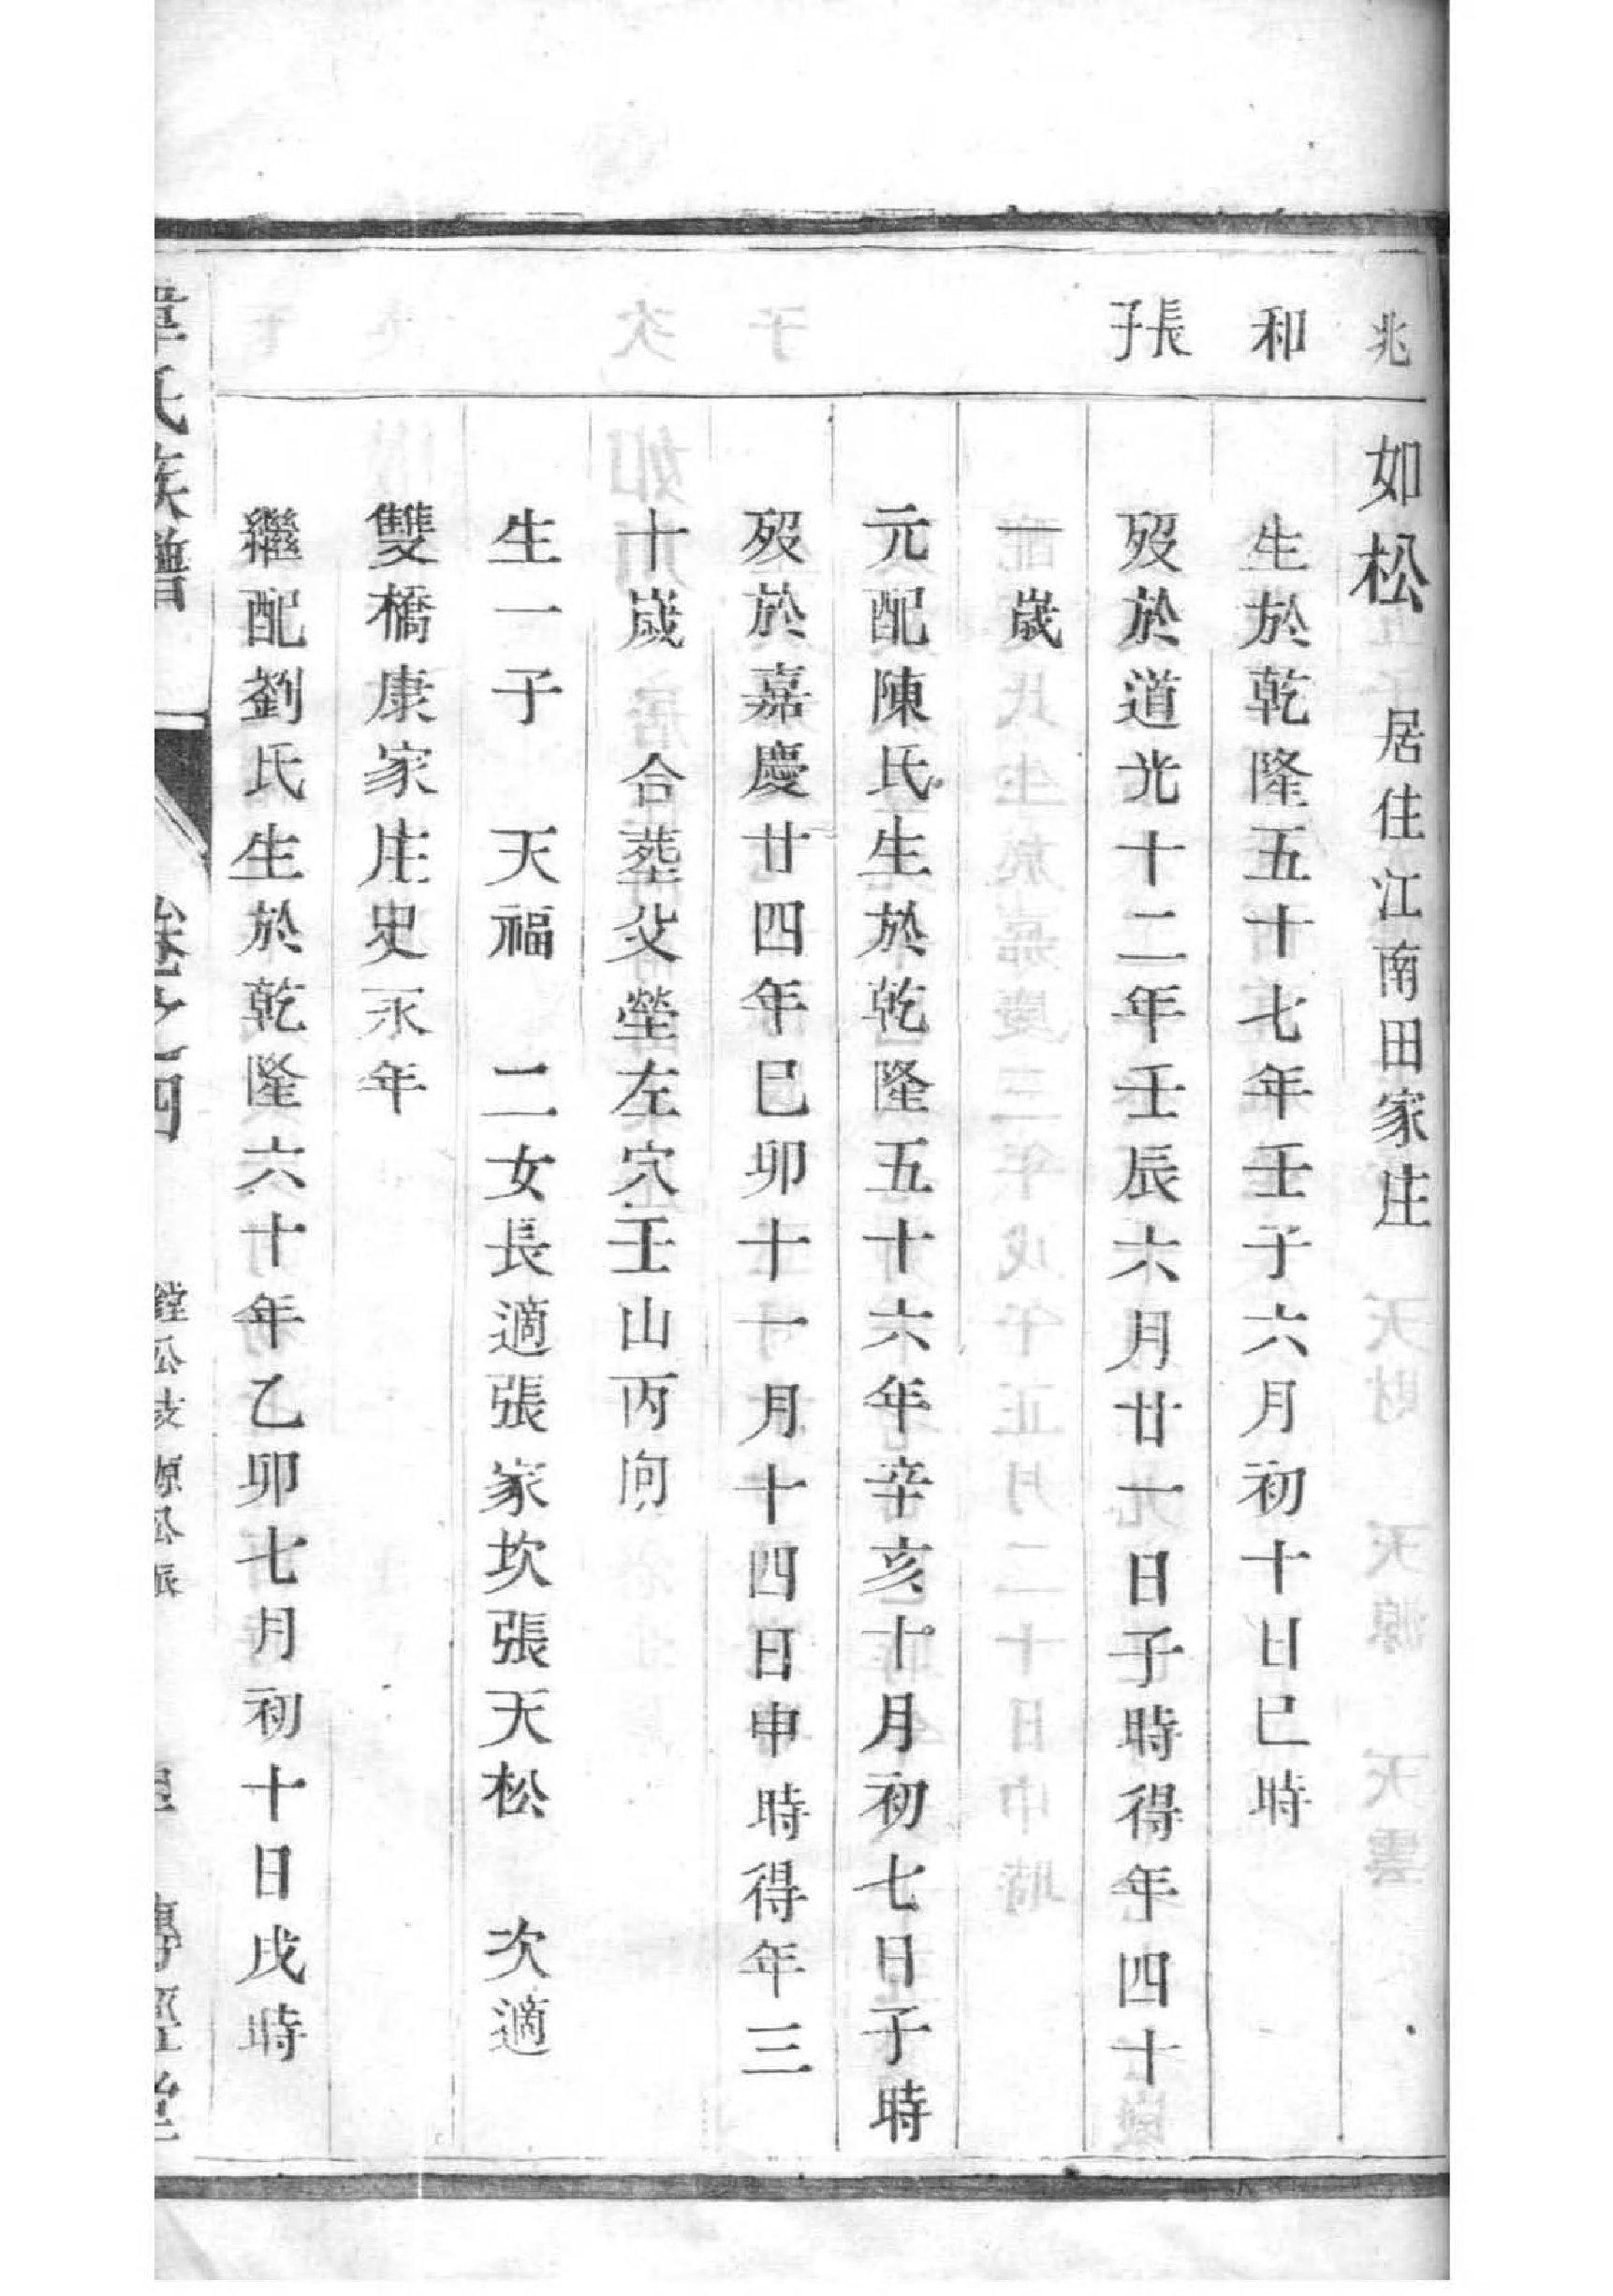 兆和長子
如松 居住江南田家庄
生於乾隆五十七年壬子六月初十日巳時
歿於道光十二年壬辰六月廿一日子時得年四十
一歲
元配陳氏生於乾隆五十六年辛亥十月初七日子時
歿於嘉慶廿四年巳卯十一月十四日申時得年三
十歲 合葬父塋左穴壬山丙向
生一子 天福 二女長適張家坎張天松 次適
雙橋康家庄史永年
繼配劉氏生於乾隆六十年乙卯七月初十日戌時
氏族譜
卷之四